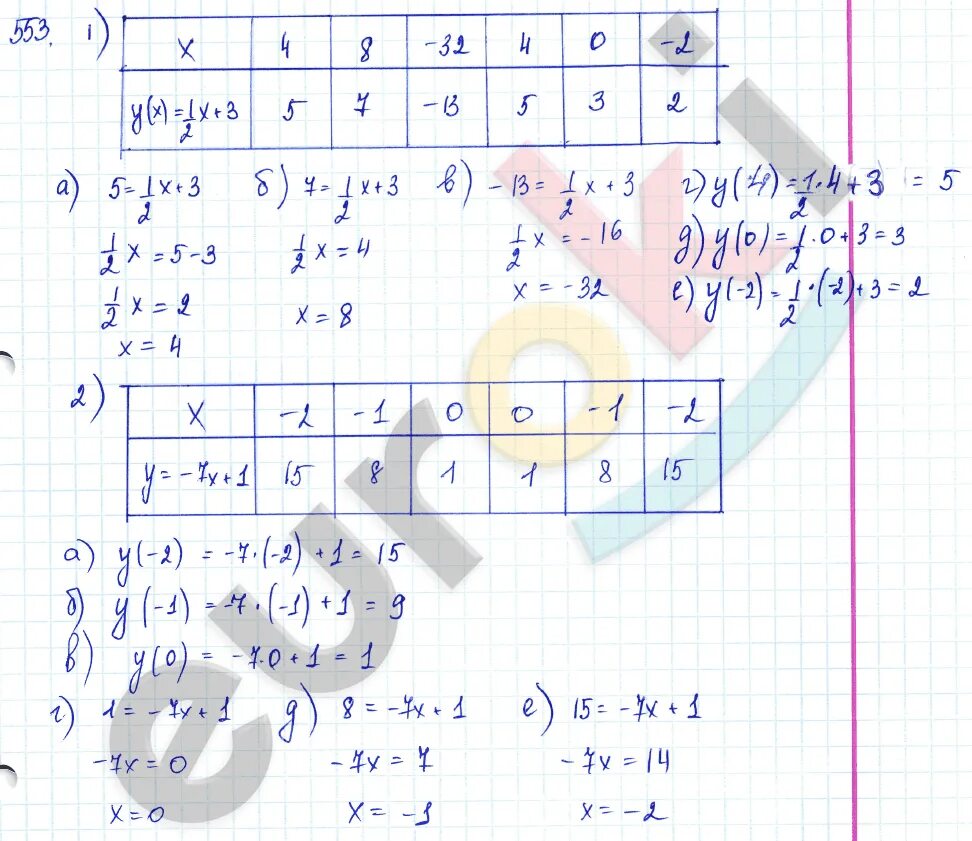 553. 1)
x 4 8 -32 4 0 -2
y(x)=1/2x+3 5 7 -13 5 3 2
а) 5=1/2x+3 б) 7=1/2x+3 в) -13=1/2x+3 г) y(4)=1/2·4+3=5
1/2x=5-3 1/2x=4 1/2x=-16 д) y(0)=1/2·0+3=3
1/2x=2 x=8 x=-32 е) y(-2)=1/2·(-2)+3=2
x=4
2)
x -2 -1 0 0 -1 -2
y=-7x+1 15 8 1 1 8 15
а) y(-2)=-7·(-2)+1=15
б) y(-1)=-7·(-1)+1=9
в) y(0)=-7·0+1=1
г) 1=-7x+1 д) 8=-7x+1 е) 15=-7x+1
-7x=0 -7x=7 -7x=14
x=0 x=-1 x=-2
euroki